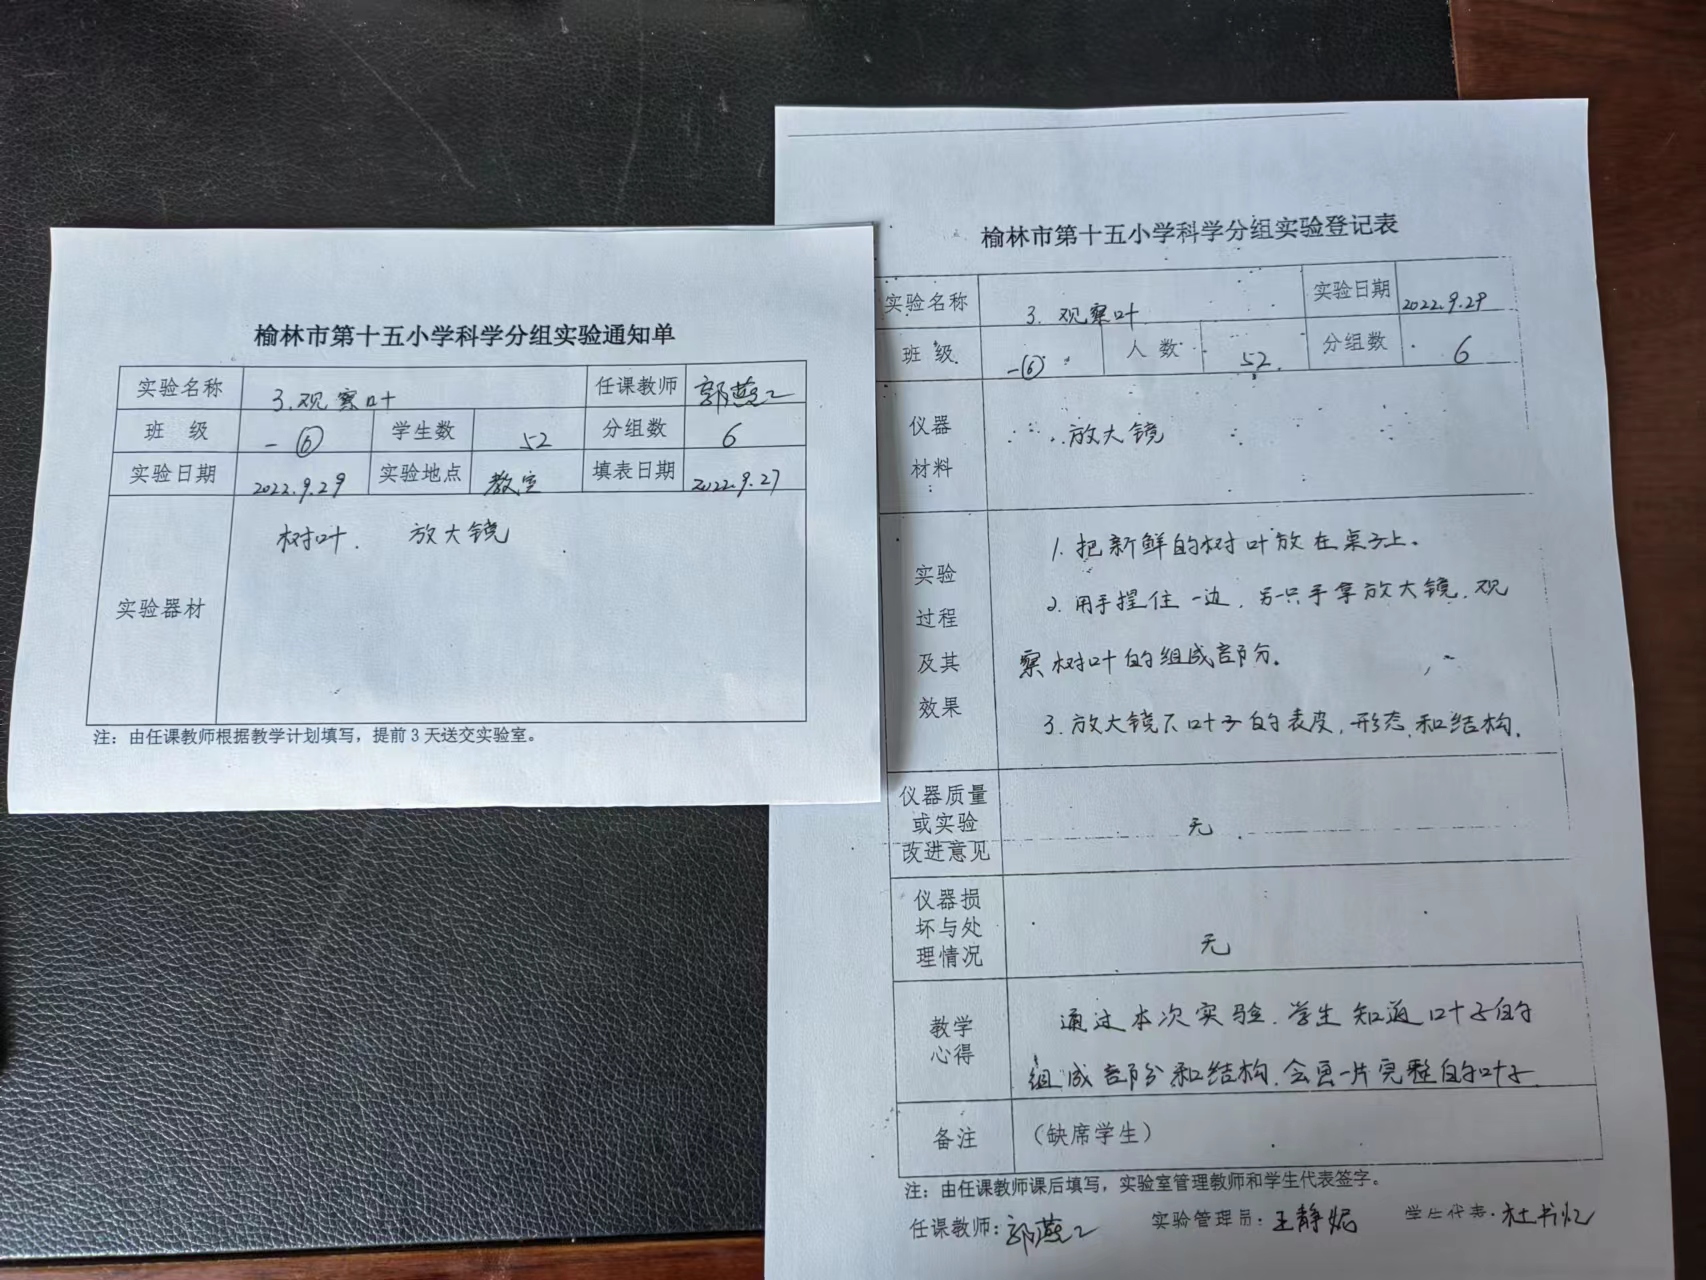 榆林市第十五小学科学分组实验通知单
实验名称 3.观察叶 任课教师 郭燕
班 级 一⑥ 学生数 52 分组数 6
实验日期 2022.9.29 实验地点 教室 填表日期 2022.9.27
实验器材 树叶. 放大镜
注：由任课教师根据教学计划填写，提前3天送交实验室。
榆林市第十五小学科学分组实验登记表
实验名称 3.观察叶 实验日期 2022.9.29
班 级 一⑥ 人 数 52. 分组数 6
仪器材料 放大镜
实验过程及其效果
1.把新鲜的树叶放在桌子上。
2.用手捏住一边.另一只手拿放大镜.观
察树叶的组成部分.
3.放大镜下叶子的表皮,形态,和结构.
仪器质量或实验改进意见 无
仪器损坏与处理情况 无
教学心得
通过本次实验.学生知道叶子的
组成部分和结构.会画一片完整的叶子.
备注 （缺席学生）
注：由任课教师课后填写，实验室管理教师和学生代表签字。
任课教师：郭燕 实验管理员：王静妮 学生代表：杜书忆